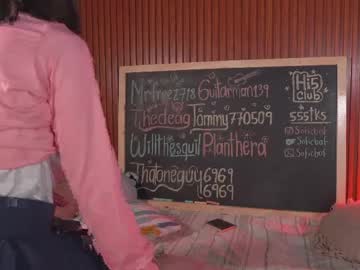 MrTreez718 Guitarman139
Thedeag Tommy770509
Willthesquil Planthera
Thatoneguy6969
16969
Hi5
Club
555tks
Soficbat
Soficbat
Soficbat